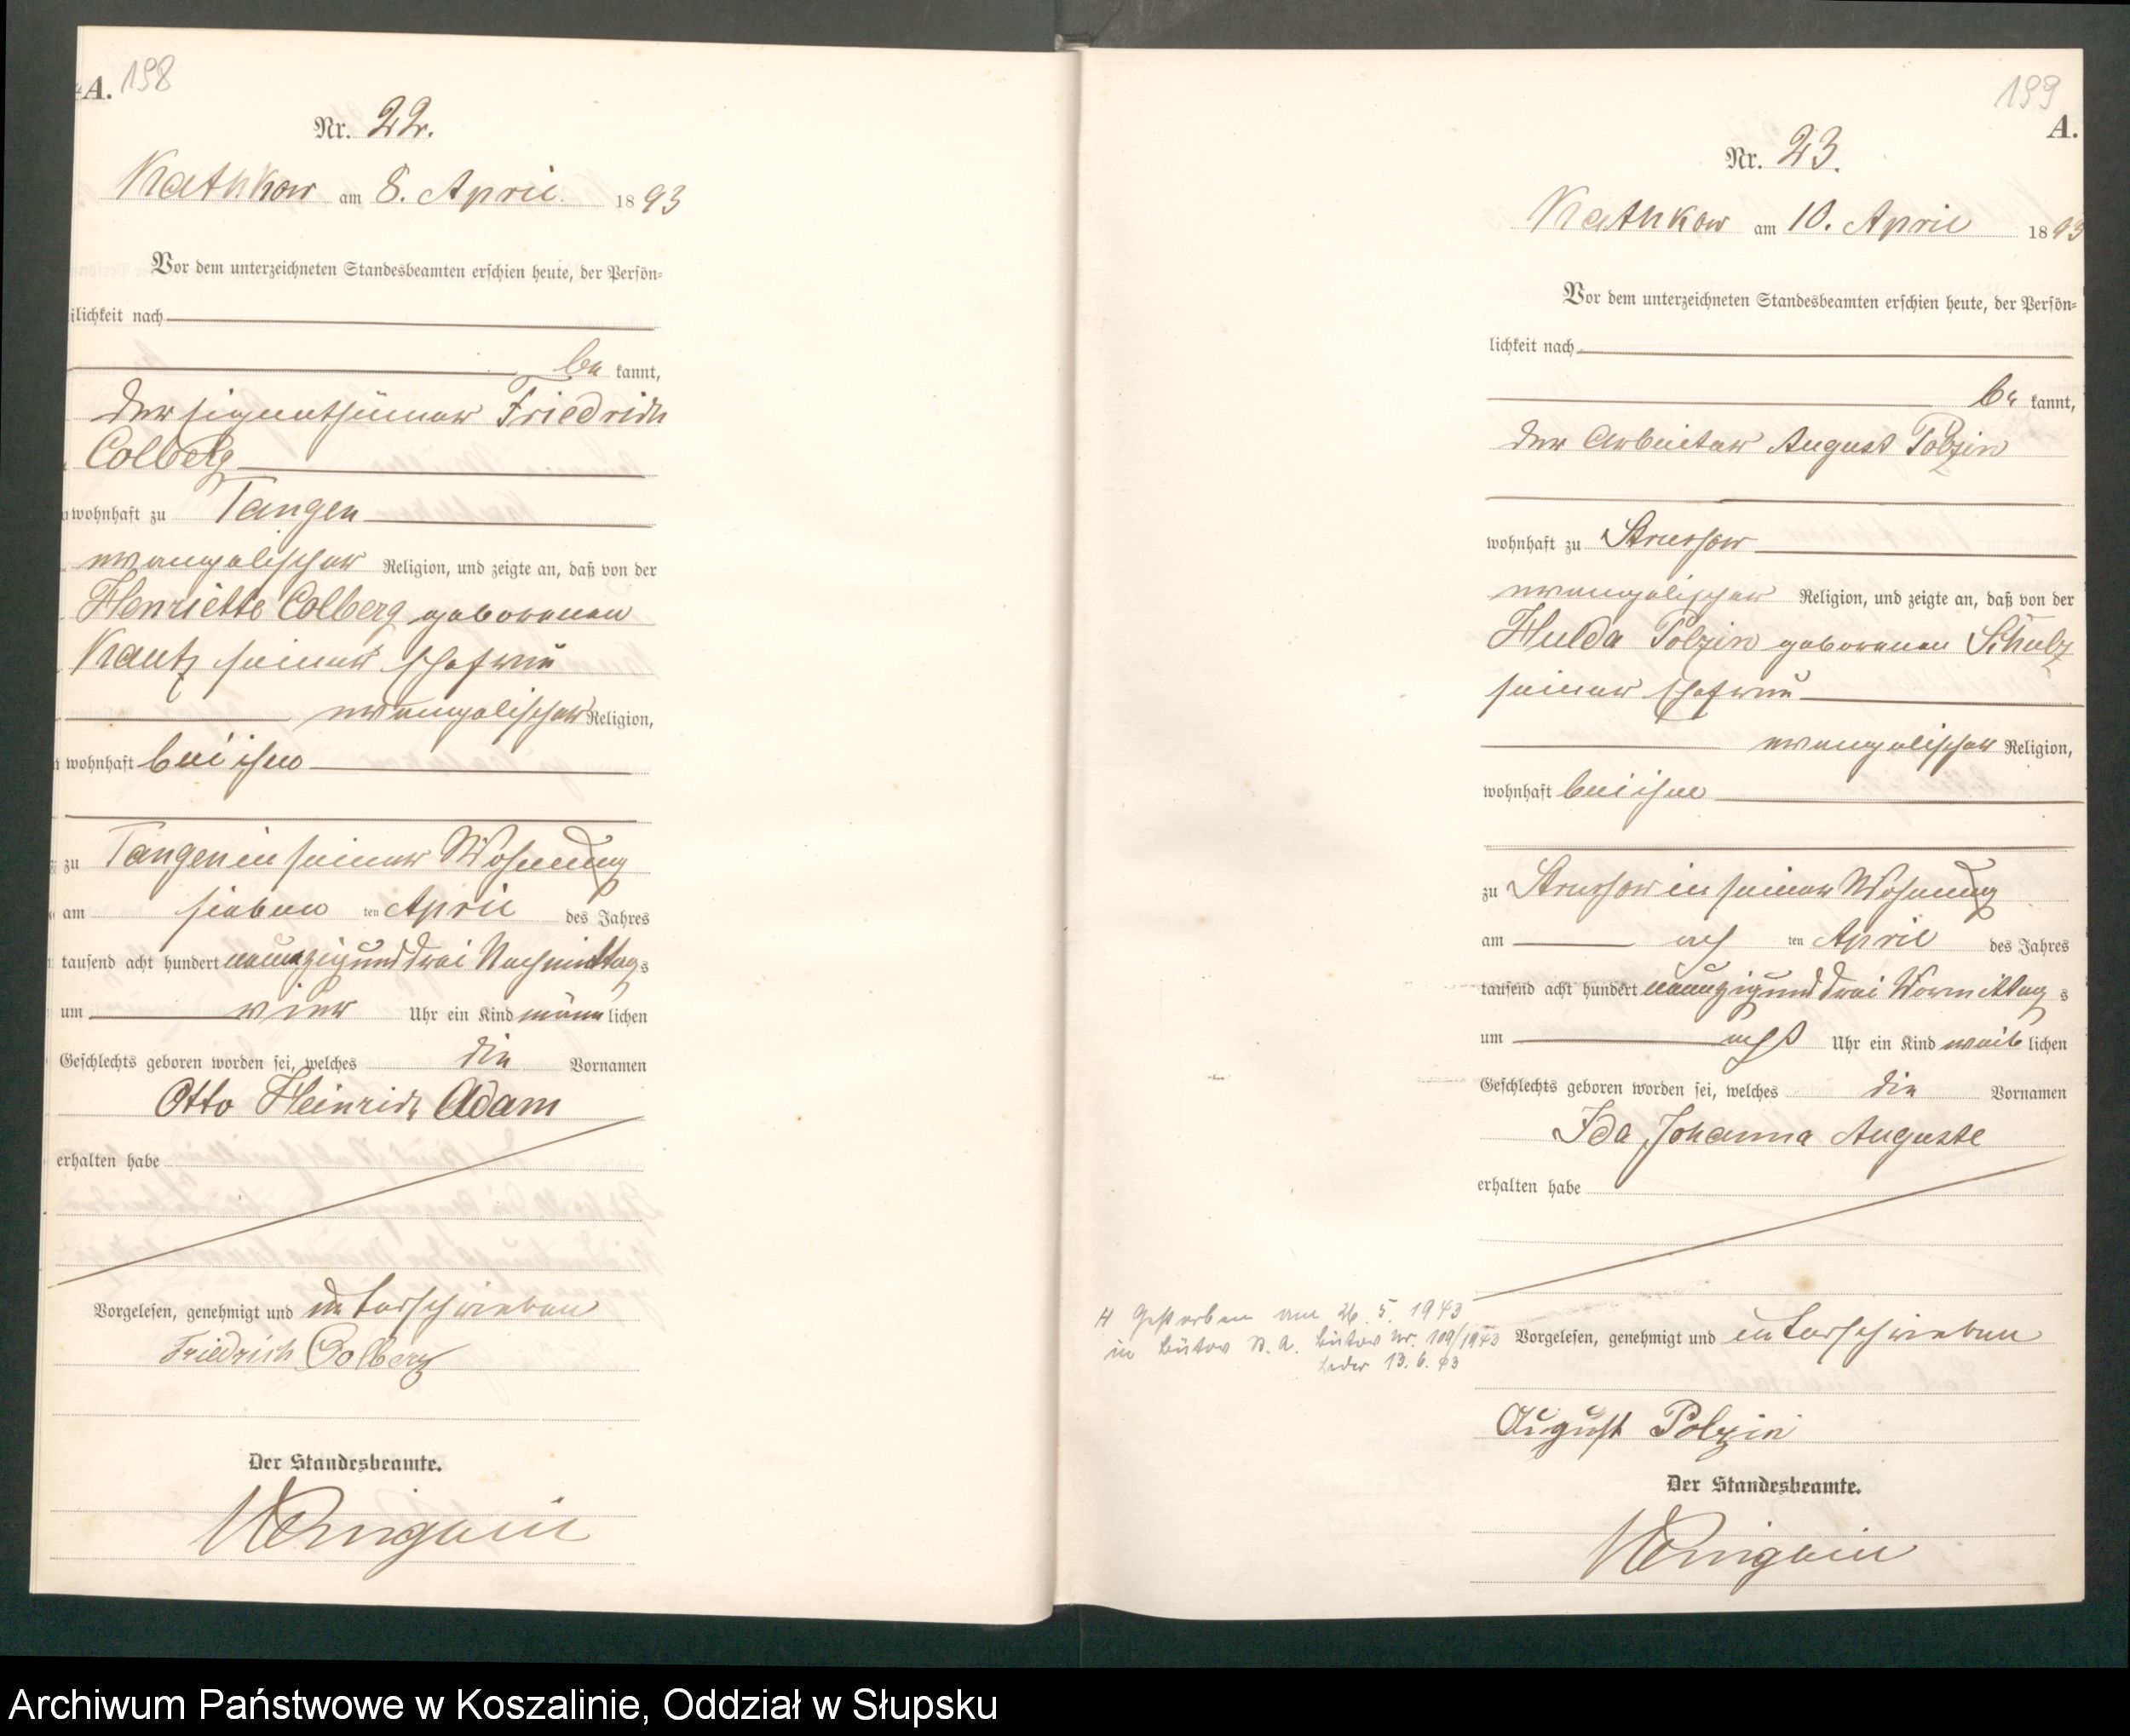 A. 198
Nr. 22.
Kathkow am 8. April 1893
Vor dem unterzeichneten Standesbeamten erschien heute, der Persön-
lichkeit nach
be kannt,
der Eigenthümer Friedrich
Colberg
wohnhaft zu Tangen
evangelischer Religion, und zeigte an, daß von der
Henriette Colberg geborenen
Kautz seiner Ehefrau
evangelischer Religion,
wohnhaft bei ihm
zu Tangen in seiner Wohnung
am sieben ten April des Jahres
tausend acht hundert neunzig und drei Nachmittags
um vier Uhr ein Kind männlichen
Geschlechts geboren worden sei, welches die Vornamen
Otto Heinrich Adam
erhalten habe
Vorgelesen, genehmigt und unterschrieben
Friedrich Colberg
Der Standesbeamte.
199
A.
Nr. 23.
Kathkow am 10. April 1893
Vor dem unterzeichneten Standesbeamten erschien heute, der Persön-
lichkeit nach
be kannt,
der Arbeiter August Polzin
wohnhaft zu Strussow
evangelischer Religion, und zeigte an, daß von der
Hulda Polzin geborenen Schulz
seiner Ehefrau
evangelischer Religion,
wohnhaft bei ihm
zu Strussow in seiner Wohnung
am ach ten April des Jahres
tausend acht hundert neunzig und drei Vormittags
um acht Uhr ein Kind weiblichen
Geschlechts geboren worden sei, welches die Vornamen
Ida Johanna Auguste
erhalten habe
H Gestorben am 26. 5. 1943
in Bütow St. A. Bütow Nr. 109/1943
13. 6. 43
Vorgelesen, genehmigt und unterschrieben
August Polzin
Der Standesbeamte.
Archiwum Państwowe w Koszalinie, Oddział w Słupsku